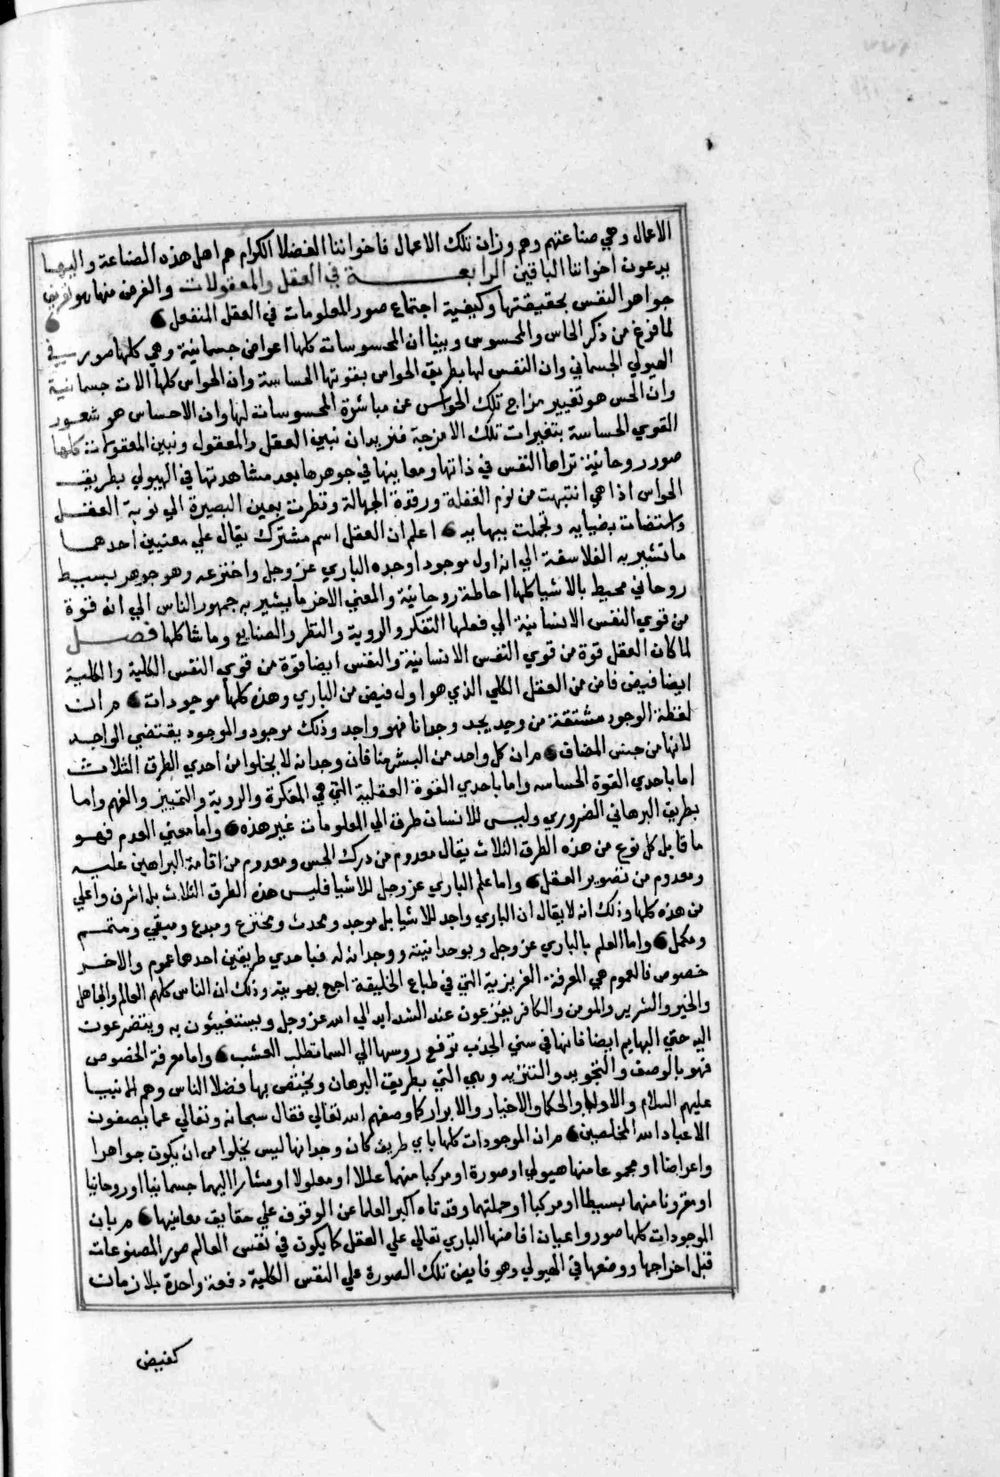 الاعمال وهي صناعتهم وهم وزان تلك الاعمال فاخواننا الفضلا الكرام هم اهل هذه الصناعة واليها
يدعون اخواننا الباقين الرابعة في العقل والمعقولات والغرض منها هو تعريف
جواهر النفس بحقيقتها وكيفية اجتماع صور المعلومات في العقل المنفعل
لما فرغ من ذكر الحاس والمحسوس وبينا ان المحسوسات كلها اعراض جسمانية وهي كلها صور في
الهيولي الجسماني وان النفس لها بطريق الحواس بقوتها الحساسة وان الحواس كلها الات جسمانية
وان الحس هو تغيير مزاج تلك الحواس عن مباشرة المحسوسات لها وان الاحساس هو شعور
القوي الحساسة بتغيرات تلك الامزجة فنريد ان نبين العقل والمعقول ونبين المعقولات كلها
صور روحانية تراها النفس في ذاتها ومعاينها في جوهرها بعد مشاهدتها في الهيولي بطريق
الحواس اذا هي انتبهت من نوم الغفلة ورقدة الجهالة ونظرت بعين البصيرة الي نوبة العقل
واستضات بضيايه وتجملت ببهايه اعلم ان العقل اسم مشترك يقال علي معنيين احدهما
ما تشير به الفلاسفة الي انه اول موجود اوجده الباري عز وجل واخترعه وهو جوهر بسيط
روحاني محيط بالاشيا كلها احاطة روحانية والمعني الاخر ما يشير به جمهور الناس الي انه قوة
من قوي النفس الانسانية الي فعلها التفكر والروية والنظر والصنايع وما شاكلها فصل
لما كان العقل قوة من قوي النفس الانسانية والنفس ايضا قوة من قوي النفس الكلية والكلية
ايضا فيض فاض من العقل الكلي الذي هو اول فيض من الباري وهذه كلها موجودات م ان
لفظة الوجود مشتقة من وجد يجد وجدانا فهو واجد وذلك موجود والموجود يقتضي الواجد
لانها من جنس المضاف م ان كل واحد من البشر منا فان وجدانه لا يخلوا من احدي الطرق الثلاث
اما باحدي القوة الحساسه واما باحدي القوة العقلية التي هي المفكرة والروية والتمييز والفهم واما
بطريق البرهاني الضروري وليس للانسان طرق الي المعلومات غير هذه واما معني العدم فهو
ما قابل كل نوع من هذه الطرق الثلاث يقال معدوم من درك الحس ومعدوم من اقامة البراهين عليه
ومعدوم من تصوير العقل واما علم الباري عز وجل للاشيا فليس هذه الطرق الثلاث بل اشرف واعلي
من هذه كلها وذلك انه لا يقال ان الباري واجد للاشيا بل موجد ومحدث ومخترع ومبدع ومبقي ومتمم
ومكمل واما العلم بالباري عز وجل وبوحدانيته ووجدانه له فباحدي طريقين احدهما عموم والاخر
خصوص فالعموم هي المعرفة الغريزية التي في طباع الخليقة اجمع بهويته وذلك ان الناس كلهم العالم والجاهل
والخير والشرير والمومن والكافر يفزعون عند الشدايد الي الله عز وجل ويستغيثون به ويتضرعون
اليه حتي البهايم ايضا فانها في سني الجذب ترفع روسها الي السما تطلب العشب واما معرفة الخصوص
فهو بالوصف والتجويد والتنزيه وهي التي بطريق البرهان ويختص بها فضلا الناس وهم الانبيا
عليهم السلام والاوليا والحكما والاخيار والابرار كما وصفهم الله تعالي فقال سبحانه وتعالي عما يصفون
الا عباد الله المخلصين م ان الموجودات كلها باي طريق كان وجدانها ليس يخلوا من ان يكون جواهرا
واعراضا او مجموعا منها هيولي او صورة او مركبا منهما عللا او معلولا او مشارا اليهما جسمانيا او روحانيا
او مقرونا منهما بسيطا او مركبا او جملتهما وقد تاه اكبر العلما عن الوقوف علي حقايق معانيها م بان
الموجودات كلها صور واعيان افاضها الباري تعالي علي العقل كما يكون في نفس العالم صور المصنوعات
قبل اخراجها ووضعها في الهيولي وهو فايض تلك الصورة علي النفس الكلية دفعة واحدة بلا زمان
كفيض